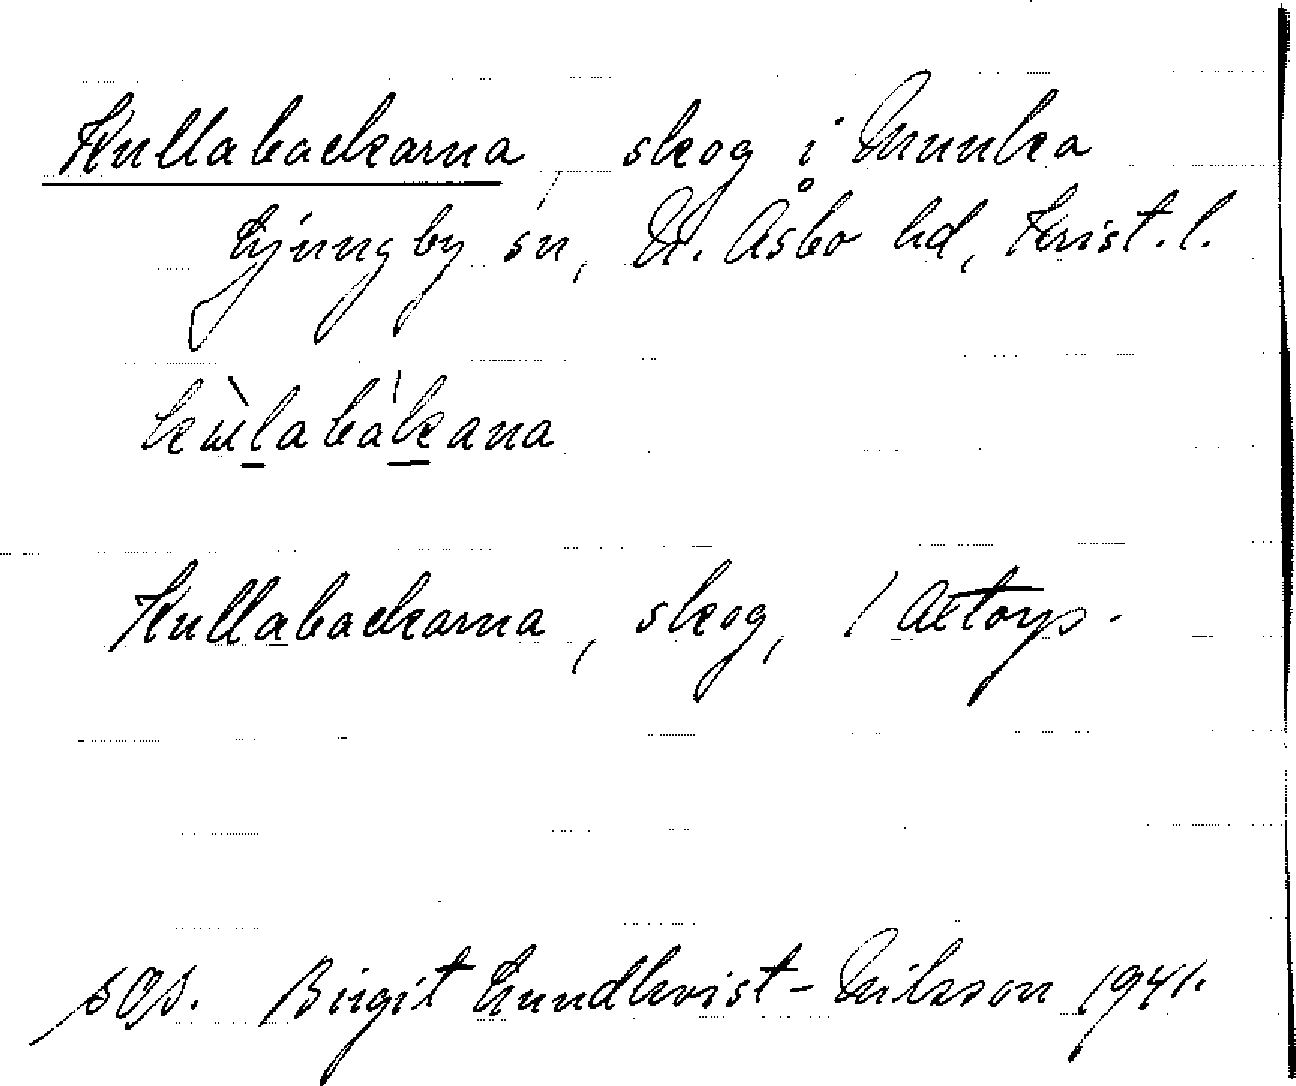 Kullabackarna, skog i Munka
Ljungby sn, N. Åsbo hd, Krist. l.
kùlabákana
Kullabackarna, skog, / Aktorp.
sos. Birgit Lundkvist-Nilsson 1941.